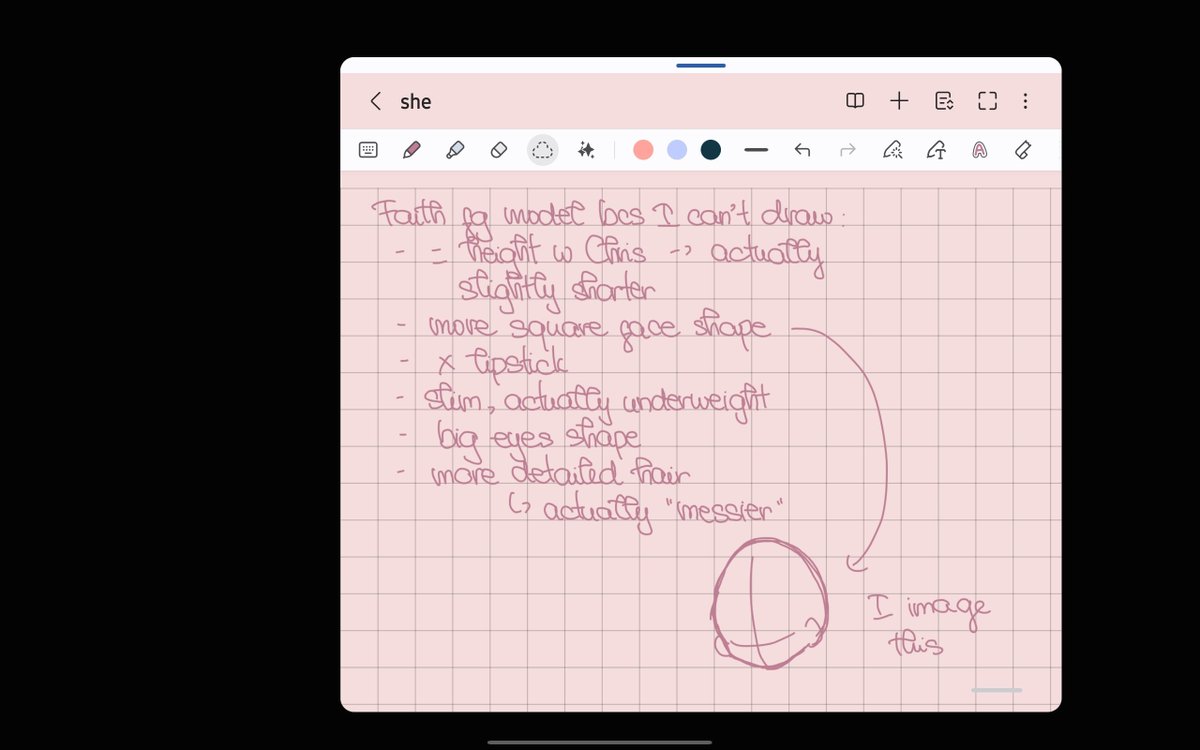 she
Faith fg model bcs I can't draw:
- = height w Chris -> actually
slightly shorter
- more square face shape
- x lipstick
- slim, actually underweight
- big eyes shape
- more detailed hair
↳ actually "messier"
I image
this